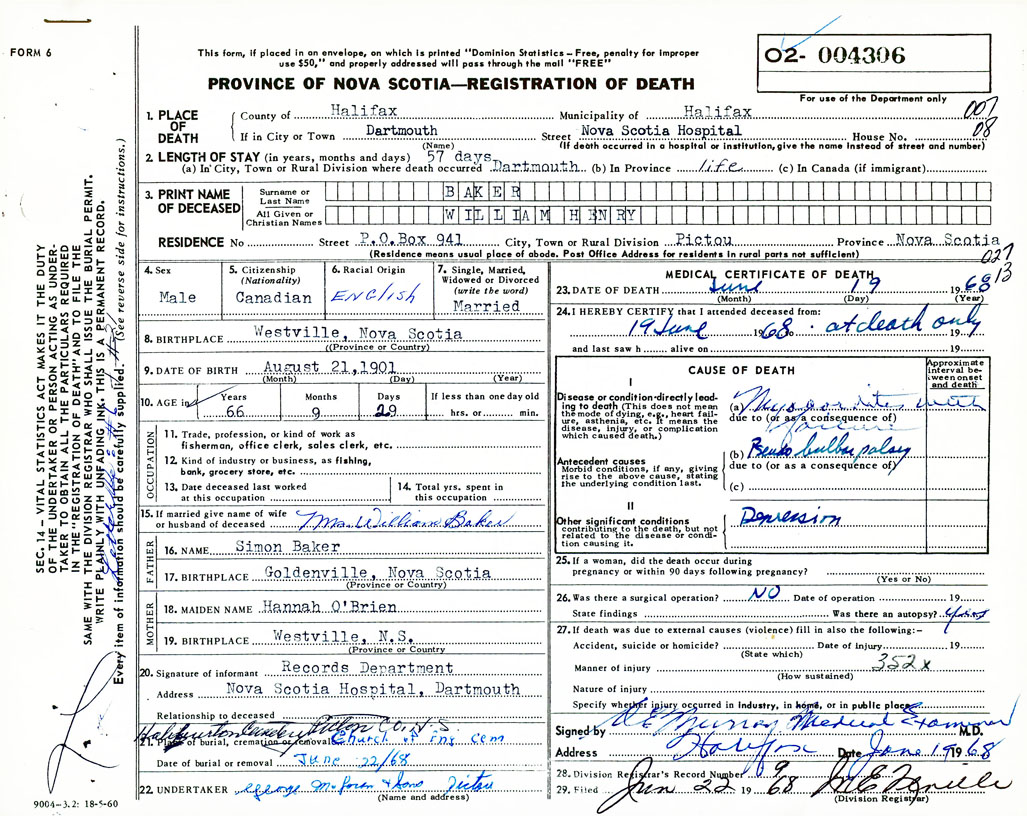 FORM 6
This form, if placed in an envelope, on which is printed "Dominion Statistics – Free, penalty for improper
use $50," and properly addressed will pass through the mail "FREE"
PROVINCE OF NOVA SCOTIA—REGISTRATION OF DEATH
02- 004306
For use of the Department only
007
08
1. PLACE OF DEATH
County of Halifax Municipality of Halifax
If in City or Town Dartmouth Street Nova Scotia Hospital House No.
(Name) (If death occurred in a hospital or institution, give the name instead of street and number)
2. LENGTH OF STAY (in years, months and days) 57 days
(a) In City, Town or Rural Division where death occurred Dartmouth (b) In Province life (c) In Canada (if immigrant)
3. PRINT NAME OF DECEASED
Surname or Last Name BAKER
All Given or Christian Names WILLIAM HENRY
RESIDENCE No Street P.O.Box 941 City, Town or Rural Division Pictou Province Nova Scotia
(Residence means usual place of abode. Post Office Address for residents in rural parts not sufficient)
027
13
4. Sex
Male
5. Citizenship
(Nationality)
Canadian
6. Racial Origin
ENGlish
7. Single, Married, Widowed or Divorced
(write the word)
Married
8. BIRTHPLACE Westville, Nova Scotia
(Province or Country)
9. DATE OF BIRTH August 21, 1901
(Month) (Day) (Year)
10. AGE in Years Months Days If less than one day old
66 9 29 hrs. or min.
OCCUPATION
11. Trade, profession, or kind of work as
fisherman, office clerk, sales clerk, etc.
12. Kind of industry or business, as fishing,
bank, grocery store, etc.
13. Date deceased last worked
at this occupation
14. Total yrs. spent in
this occupation
15. If married give name of wife
or husband of deceased Mrs. William Baker
FATHER
16. NAME Simon Baker
17. BIRTHPLACE Goldenville, Nova Scotia
(Province or Country)
MOTHER
18. MAIDEN NAME Hannah O'Brien
19. BIRTHPLACE Westville, N.S.
(Province or Country
20. Signature of informant Records Department
Address Nova Scotia Hospital, Dartmouth
Relationship to deceased
Pictou Co. N.S.
21. Place of burial, cremation or removal Church of Eng Cem
Date of burial or removal June 22/68
22. UNDERTAKER George and Sons Pictou
(Name and address)
MEDICAL CERTIFICATE OF DEATH
23. DATE OF DEATH June 19 1968
(Month) (Day) (Year)
24. I HEREBY CERTIFY that I attended deceased from:
19 June 1968 · at death only 19
and last saw h alive on 19
CAUSE OF DEATH
Approximate interval between onset and death
I
Disease or condition directly leading to death (This does not mean the mode of dying, e.g., heart failure, asthenia, etc. It means the disease, injury, or complication which caused death.)
(a) Myocarditis with
due to (or as a consequence of)
failure
Antecedent causes
Morbid conditions, if any, giving rise to the above cause, stating the underlying condition last.
(b) Pseudo bulbar palsy
due to (or as a consequence of)
(c)
II
Other significant conditions
contributing to the death, but not related to the disease or condition causing it.
Depression
25. If a woman, did the death occur during
pregnancy or within 90 days following pregnancy?
(Yes or No)
26. Was there a surgical operation? NO Date of operation 19
State findings Was there an autopsy?
27. If death was due to external causes (violence) fill in also the following:–
Accident, suicide or homicide? Date of injury 19
(State which)
Manner of injury 352x
(How sustained)
Nature of injury
Specify whether injury occurred in industry, in home, or in public place
Signed by Murray Medical Examiner M.D.
Address Halifax Date June 19 1968
28. Division Registrar's Record Number 9
29. Filed Jun 22 1968
(Division Registrar)
SEC. 14 – VITAL STATISTICS ACT MAKES IT THE DUTY
OF THE UNDERTAKER OR PERSON ACTING AS UNDER-
TAKER TO OBTAIN ALL THE PARTICULARS REQUIRED
IN THE "REGISTRATION OF DEATH" AND TO FILE THE
SAME WITH THE DIVISION REGISTRAR WHO SHALL ISSUE THE BURIAL PERMIT.
WRITE PLAINLY WITH UNFADING INK. THIS IS A PERMANENT RECORD.
Every item of information should be carefully supplied. (See reverse side for instructions.)
9004-3.2: 18-5-60